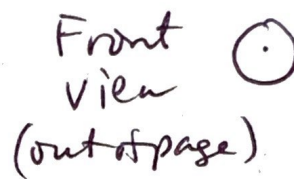 Front
view
(out of page)